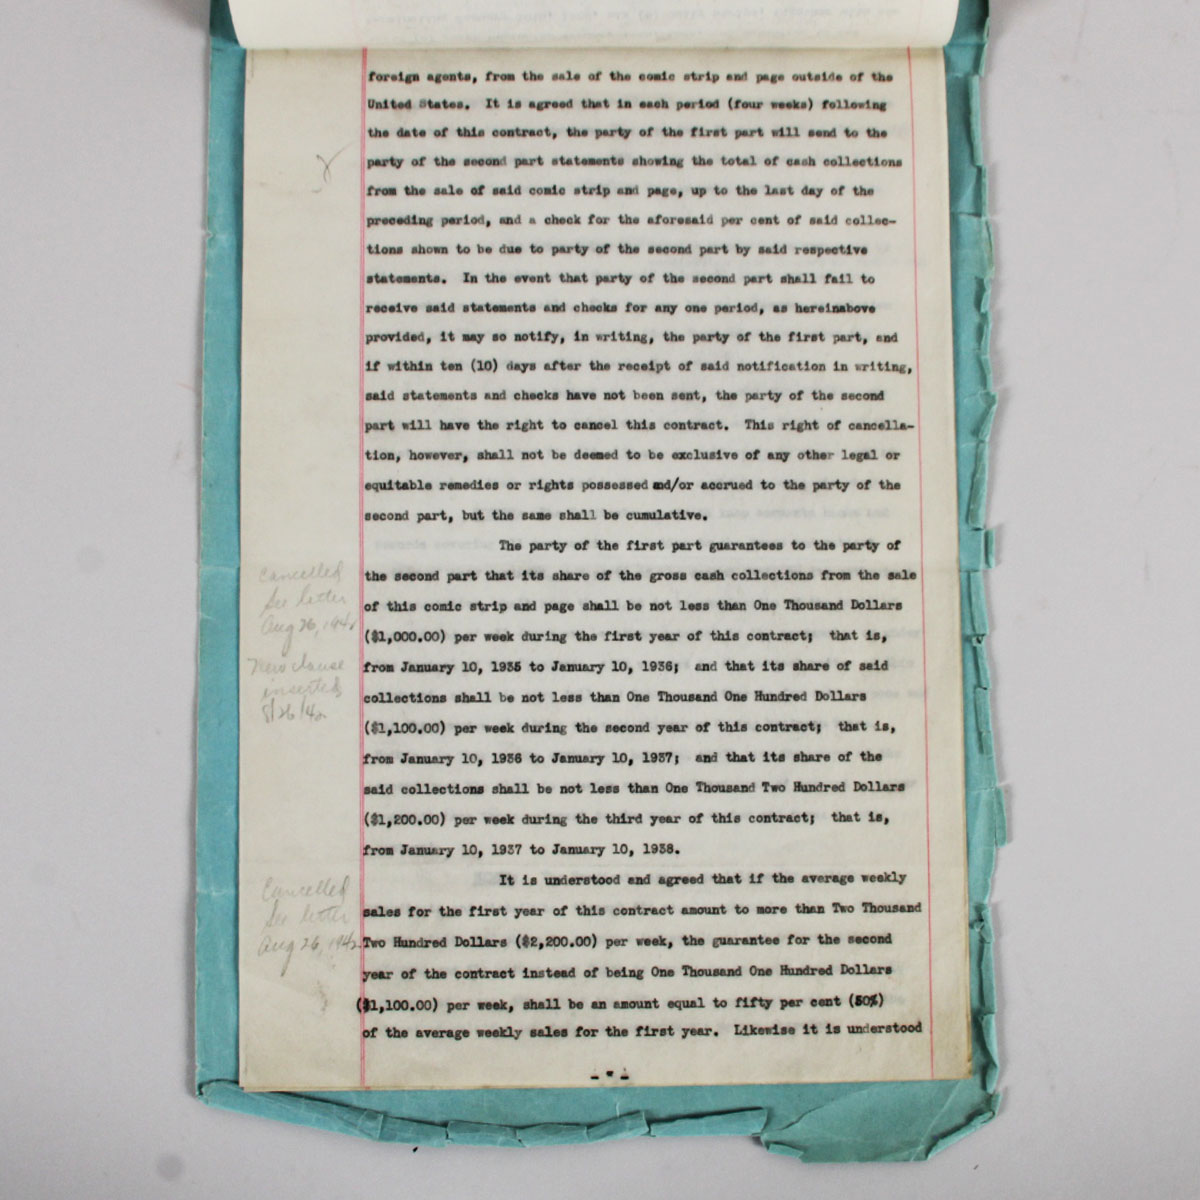 foreign agents, from the sale of the comic strip and page outside of the
United States. It is agreed that in each period (four weeks) following
the date of this contract, the party of the first part will send to the
party of the second part statements showing the total of cash collections
from the sale of said comic strip and page, up to the last day of the
preceding period, and a check for the aforesaid per cent of said collec-
tions shown to be due to party of the second part by said respective
statements. In the event that party of the second part shall fail to
receive said statements and checks for any one period, as hereinabove
provided, it may so notify, in writing, the party of the first part, and
if within ten (10) days after the receipt of said notification in writing,
said statements and checks have not been sent, the party of the second
part will have the right to cancel this contract. This right of cancella-
tion, however, shall not be deemed to be exclusive of any other legal or
equitable remedies or rights possessed and/or accrued to the party of the
second part, but the same shall be cumulative.
The party of the first part guarantees to the party of
the second part that its share of the gross cash collections from the sale
of this comic strip and page shall be not less than One Thousand Dollars
($1,000.00) per week during the first year of this contract; that is,
from January 10, 1935 to January 10, 1936; and that its share of said
collections shall be not less than One Thousand One Hundred Dollars
($1,100.00) per week during the second year of this contract; that is,
from January 10, 1936 to January 10, 1937; and that its share of the
said collections shall be not less than One Thousand Two Hundred Dollars
($1,200.00) per week during the third year of this contract; that is,
from January 10, 1937 to January 10, 1938.
Cancelled
See letter
Aug 26, 1942
New clause
inserted
8/26/42
It is understood and agreed that if the average weekly
sales for the first year of this contract amount to more than Two Thousand
Two Hundred Dollars ($2,200.00) per week, the guarantee for the second
year of the contract instead of being One Thousand One Hundred Dollars
($1,100.00) per week, shall be an amount equal to fifty per cent (50%)
of the average weekly sales for the first year. Likewise it is understood
Cancelled
See letter
Aug 26, 1942